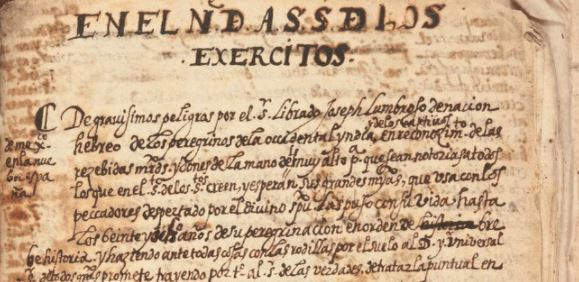 EN EL N. D. A. S. S. D LOS
EXERCITOS.
De gravisimos peligros por el s. librado Joseph Lumbroso de nacion
y de los captivos
hebreo de los peregrinos de la occidental yndia, en reconozimto de las
de mexco
en la nue
ba espa
ña
rezebidas mrds, y dones de la mano del muy alto pa. que sean notorias a todos
los que en el sto de los stos creen, y esperan sus grandes mias, que usa con los
peccadores despertado por el divino spu las puso con su vida hasta
los beinte y años de su peregrinacion en orden de historia bre
be historia. y haziendo ante todas cosas con las rodillas por el suelo al D. y s. universal
de todos promete trayendo por to al s. de las verdades, de tratar la puntual en